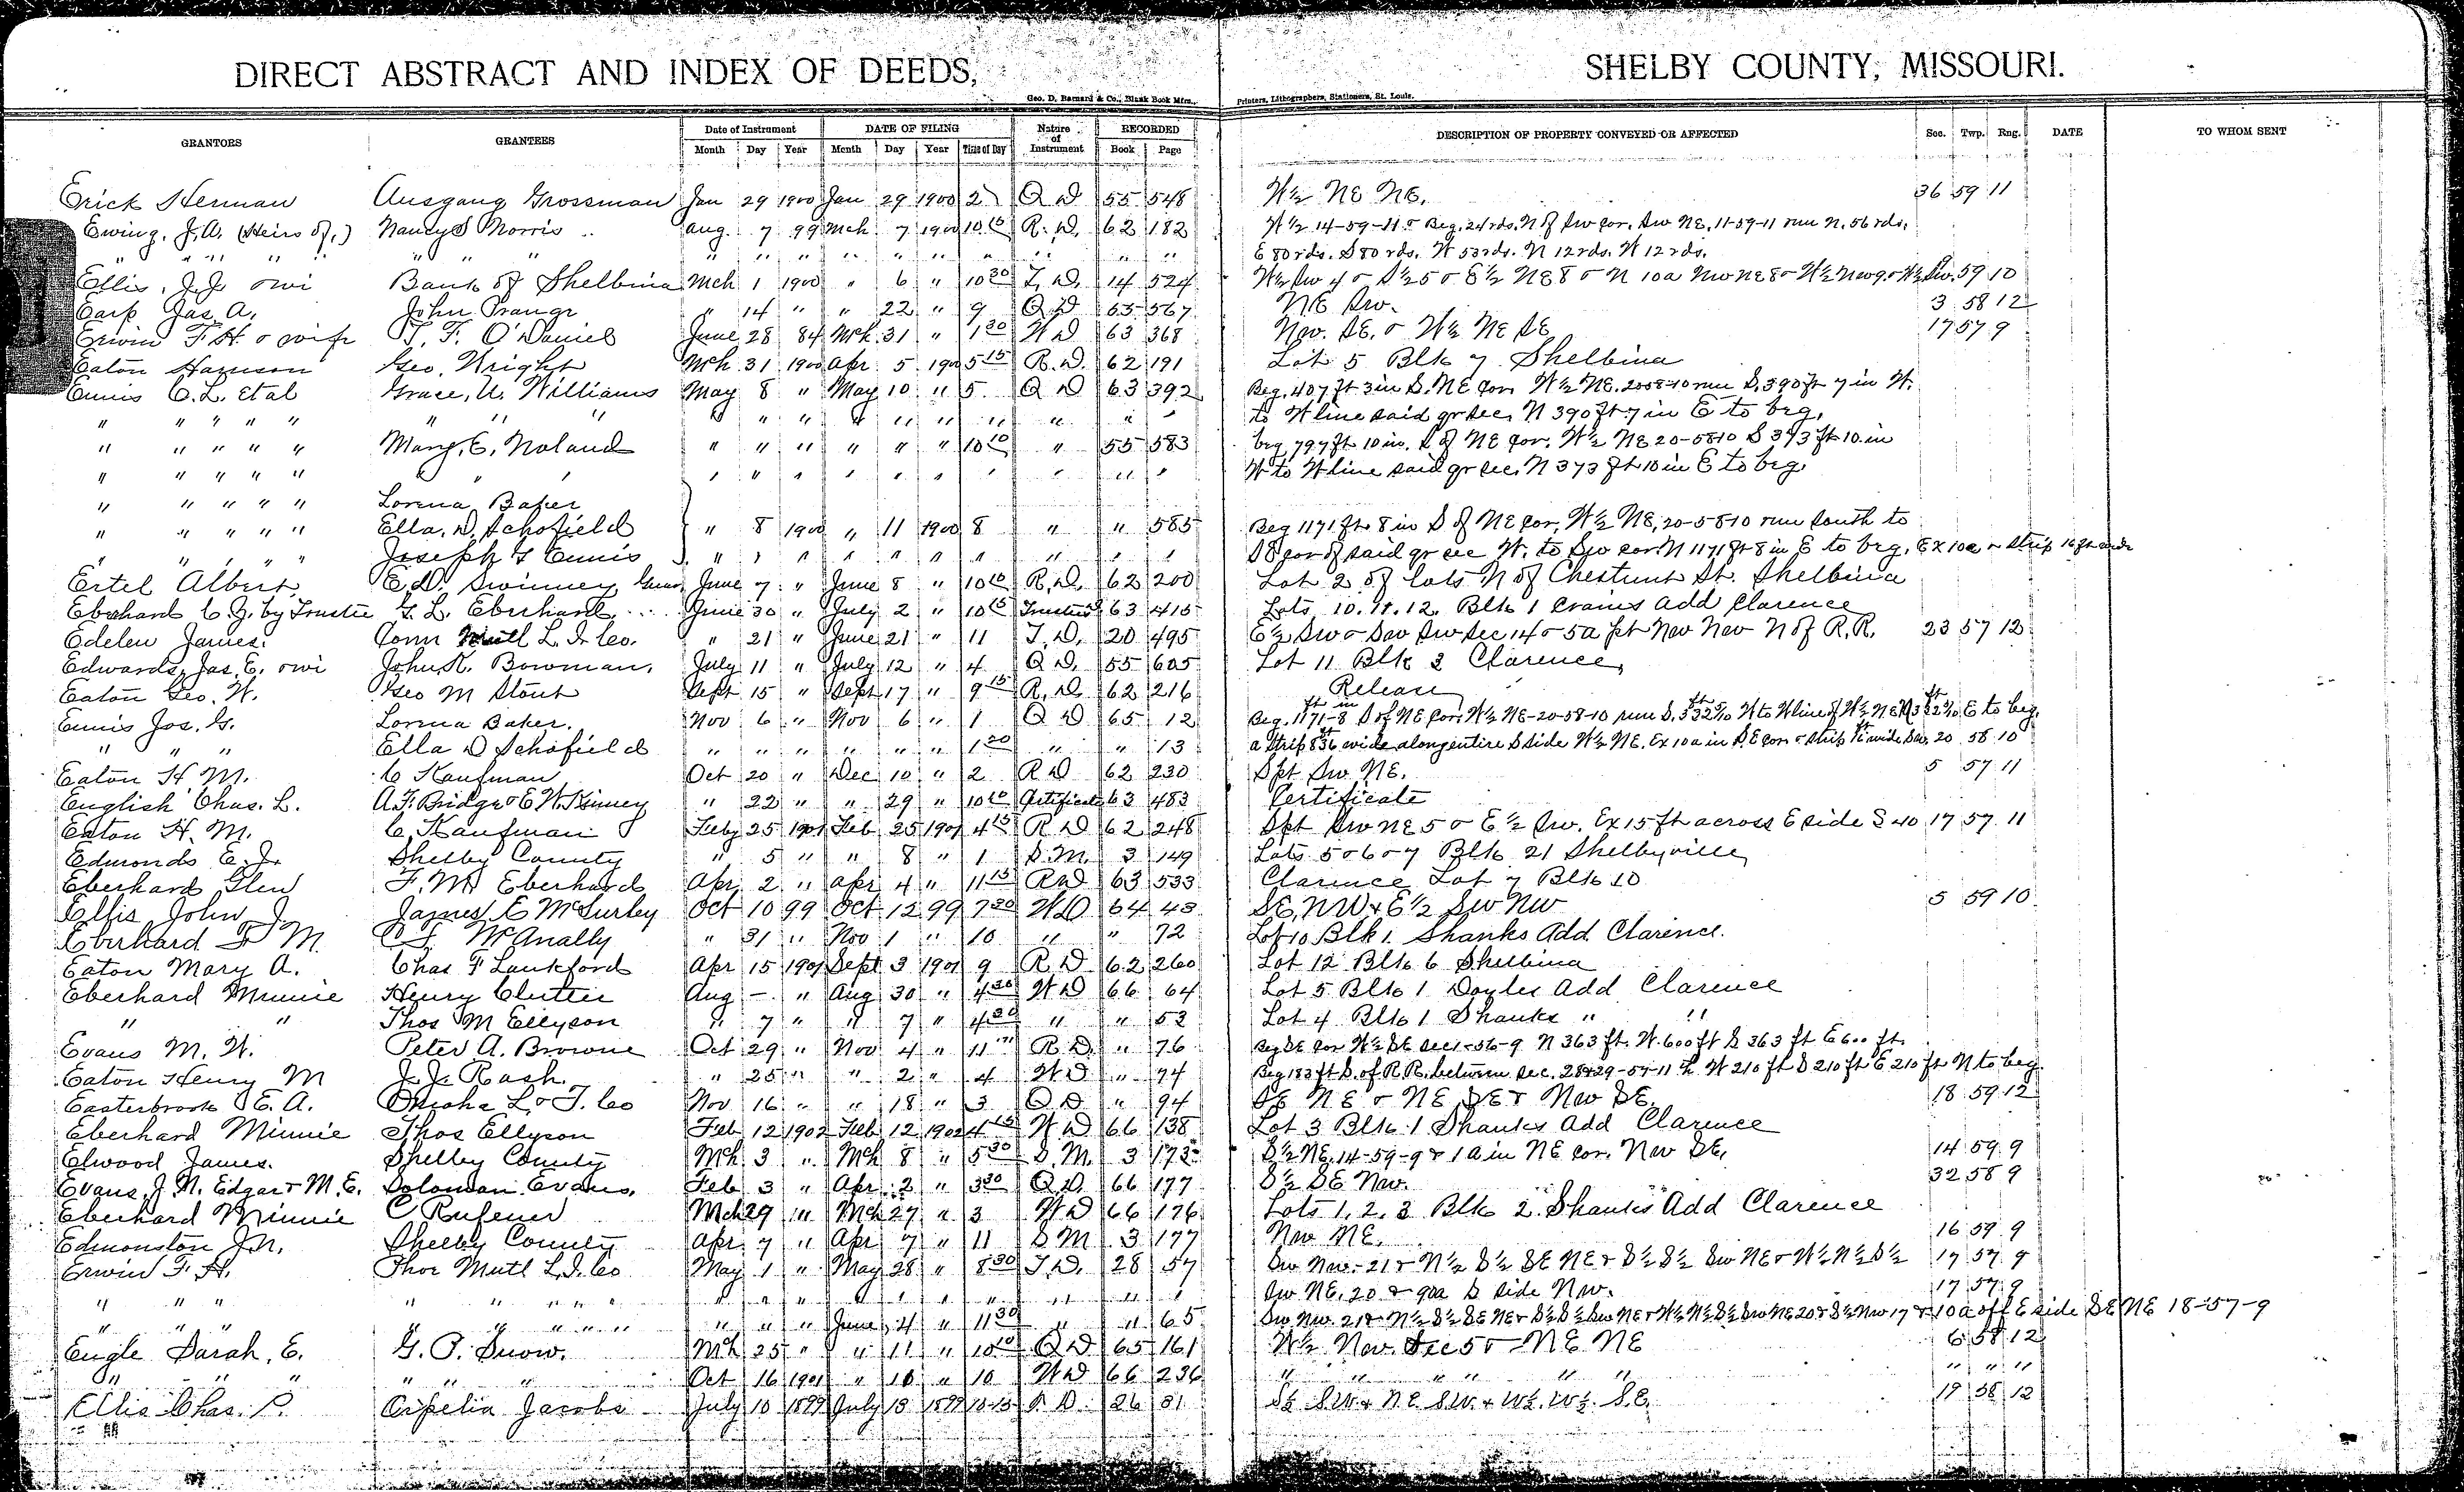 DIRECT ABSTRACT AND INDEX OF DEEDS, SHELBY COUNTY, MISSOURI.
Geo. D. Barnard & Co., Blank Book Mfrs., Printers, Lithographers, Stationers, St. Louis.
GRANTORS GRANTEES Date of Instrument DATE OF FILING Nature of Instrument RECORDED DESCRIPTION OF PROPERTY CONVEYED OR AFFECTED Sec. Twp. Rng. DATE TO WHOM SENT
Month Day Year Month Day Year Time of Day Book Page
Erick Herman Ausgang Grossman Jan 29 1900 Jan 29 1900 2 Q D 55 548 W½ NE NE. 36 59 11
Ewing, J.A. (Heirs of,) Nancy S Morris Aug. 7 99 Mch. 7 1900 10 10 R. D. 62 182 W½ 14-59-11 & Beg. 24 rds. N of Sw cor. Sw NE, 11-59-11 run N. 56 rds.
" " " " " " " " " " " " " " " E 80 rds. S 80 rds. W 53 rds. N 12 rds. W 12 rds.
Ellis, J.J. & wi Bank of Shelbina Mch 1 1900 " 6 " 10 30 T. D. 14 524 W½ Sw 4 & S½ 5 & E½ NE 8 & N 10a Nw NE 8 & W½ Nw 9 & W½ Sw. 59 10
Earp Jas. A. John Prange " 14 " " 22 " 9 Q D 65 567 NE Sw. 3 58 12
Erwin F.H. & wife T. F. O'Daniel June 28 84 Mch. 31 " 1 30 W D 63 368 Nw. SE. & W½ NE SE 17 57 9
Eaton Harrison Geo. Wright Mch 31 1900 Apr. 5 1900 5 15 R. D. 62 191 Lot 5 Blk 7 Shelbina
Ennis C.L. Et al Grace, U. Williams May 8 " May 10 " 5 Q D 63 392 Beg. 407 ft 3 in S. NE Cor W½ NE. 20-58-10 run S. 390 ft 7 in W.
" " " " " " " " " " " " " " " " " " to W line said qr sec. N 390 ft 7 in E to beg.
" " " " " Mary, E, Noland " " " " " " 10 10 " 55 583 beg 797 ft 10 in. S of NE Cor. W½ NE 20-58-10 S 373 ft 10 in
" " " " " " " " " " " " " " " W to W line said qr sec. N 373 ft 10 in E to beg.
" " " " " Lorena Baker
" " " " " Ella, D, Schofield " 8 1900 " 11 1900 8 " " 585 Beg 1171 ft. 8 in S of NE Cor. W½ NE, 20-58-10 run South to
" " " " " Joseph G Ennis " " " " " " " " " " SE cor of said qr sec W. to Sw cor N 1171 ft 8 in E to beg. Ex 10a & strip 16 ft wide
Ertel Albert E.D. Swinney June 7 " June 8 " 10 10 R. D. 62 200 Lot 2 of lots N of Chestnut St. Shelbina
Eberhard C.J. by Trustee G. L. Eberhard June 30 " July 2 " 10 15 Trustees 63 415 Lots 10. 11. 12. Blk 1 Crains Add Clarence
Edelen James. Conn Mutl L. I. Co. " 21 " June 21 " 11 T. D. 20 495 E½ Sw & Sw Sw Sec 14 & 5a pt Nw Nw N of R.R. 23 57 12
Edwards, Jas, E. & wi John, K. Bowman, July 11 " July 12 " 4 Q D. 55 605 Lot 11 Blk 3 Clarence,
Eaton Geo. W. Geo M Stout Sept 15 " Sept 17 " 9 15 R. D. 62 216 Release
Ennis Jos. G. Lorena Baker. Nov 6 " Nov 6 " 1 Q D 65 12 Beg. 1171 ft-8 in S of NE Cor. W½ NE-20-58-10 run S. W to W line of W½ NE E to beg.
" " " Ella D Schofield " " " " " " 1 30 " " 13 a Strip wide along entire S side W½ NE. Ex 10a in SE cor & strip 16 ft wide 20 58 10
Eaton H. M. C Kaufman Oct 20 " Dec 10 " 2 R D 62 230 S pt Sw NE. 5 57 11
English Chas. L. A.F. Bridge & E W Kinney " 22 " " 29 " 10 10 Certificate 63 483 Certificate
Eaton H. M. C. Kaufman Feby 25 1901 Feb 25 1901 4 15 R D 62 248 S pt Sw NE 5 & E½ Sw. Ex 15 ft across E side S 40 17 57 11
Edmonds E. J. Shelby County " 5 " " 8 " 1 S. M. 3 149 Lots 5 & 6 & 7 Blk 21 Shelbyville
Eberhard Glen F. M Eberhard Apr 2 " Apr 4 " 11 15 R D 63 533 Clarence Lot 7 Blk 10
Ellis John J. James E McSurley Oct 10 99 Oct 12 99 7 30 W D 64 43 SE NW & E½ SW NW 5 59 10
Eberhard F M. McAnally " 31 " Nov 1 " 10 " " 72 Lot 10 Blk 1. Shanks Add. Clarence.
Eaton Mary A. Chas F Lankford Apr 15 1901 Sept 3 1901 9 R D 62 260 Lot 12 Blk 6 Shelbina
Eberhard Minnie Henry Clutter Aug - " Aug 30 " 4 30 W D 66 64 Lot 5 Blk 1 Doyles Add Clarence
" " Thos M Ellyson " 7 " " 7 " 4 30 " " 53 Lot 4 Blk 1 Shanks " "
Evans M. W. Peter A. Browne Oct 29 " Nov 4 " 11 R. D. " 76 Beg SE Cor W½ SE Sec 1-56-9 N 363 ft. W. 600 ft S 363 ft E 600 ft.
Eaton Henry M J. J. Rash. " 25 " " 2 " 4 W D " 74 Beg 183 ft S. of R R. between Sec. 28 & 29-57-11 W 210 ft S 210 ft E 210 ft N to beg.
Easterbrook E. A. Omaha L & T. Co Nov 16 " " 18 " 3 Q D " 94 SE NE & NE SE & Nw SE. 18 59 12
Eberhard Minnie Thos Ellyson Feb 12 1902 Feb 12 1902 4 15 W D 66 138 Lot 3 Blk 1 Shanks Add Clarence
Elwood James. Shelby County Mch 3 " Mch 8 " 5 30 S. M. 3 173 S½ NE, 14-59-9 & 1 a in NE cor. Nw SE. 14 59 9
Evans, J. N. Edgar & M. E. Soloman Evans, Feb 3 " Apr 2 " 3 30 Q D. 66 177 S½ SE Nw. 32 58 9
Eberhard Minnie C Rufener Mch 29 " Mch 27 " 3 W D 66 176 Lots 1, 2, 3 Blk 2 Shanks Add Clarence
Edmonston J.N. Shelby County Apr 7 " Apr 7 " 11 S M. 3 177 Nw NE. 16 59 9
Erwin F. H. Thos Mutl L. I. Co May 1 " May 28 " 8 30 T. D. 28 57 Sw Nw-21 & N½ S½ SE NE & S½ S½ Sw NE & W½ N½ S½ 17 57 9
" " " " " " " " " " " " " " " " " Sw NE, 20 & 90a S side Nw. 17 57 9
" " " " " " " " " " " June 4 " 11 30 " " 65 Sw Nw. 21 & N½ S½ SE NE & S½ S½ Sw NE & W½ N½ S½ Sw NE 20 & S½ Nw 17 & 10a off E side SE NE 18-57-9
Engle Sarah, E. G. P. Snow. Mch 25 " " 11 " 10 10 Q D 65 161 W½ Nw Sec 5 & NE NE 6 58 12
" " " " " " Oct 16 1901 " 10 " 10 W D 66 236 " " " " " " " " "
Ellis Chas. P. Jacobs July 10 1899 July 18 1899 D. 26 81 SE SW & NE SW & W½ W½ SE 19 58 12